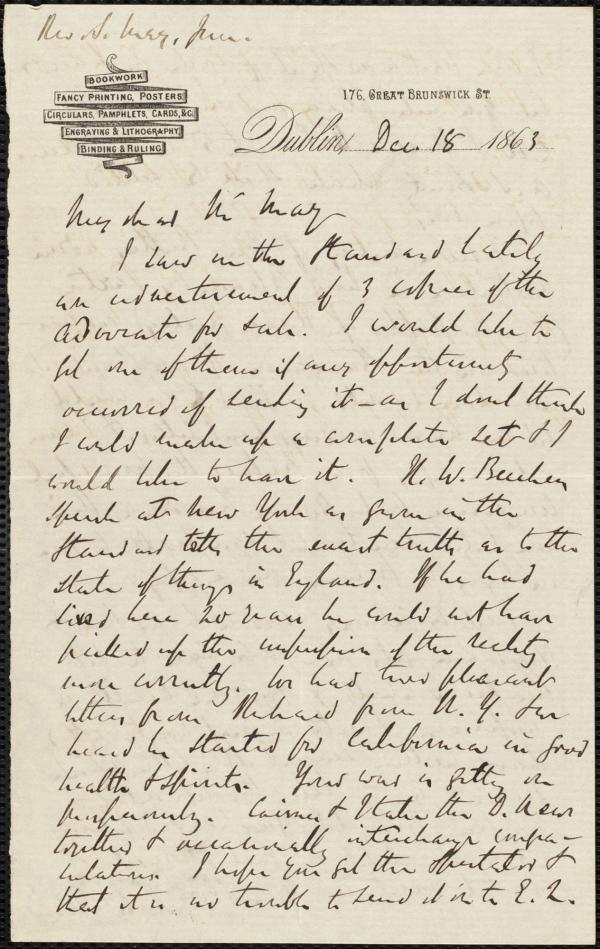 Rev. S. May, Jun.
BOOKWORK
FANCY PRINTING, POSTERS
CIRCULARS, PAMPHLETS, CARDS, &C.
ENGRAVING & LITHOGRAPHY,
BINDING & RULING
176, GREAT BRUNSWICK ST.
Dublin, Dec. 18 1863
My dear Mr May
I saw in the Standard lately
an advertisement of 3 copies of the
Advocate for sale. I would like to
get one of them if any opportunity
occurred of sending it — as I dont think
I could make up a complete set & I
would like to have it. H. W. Beecher
speech at New York as given in the
Standard tells the exact truth as to the
state of things in England. If he had
lived here 20 years he could not have
picked up the impression of the reality
more correctly. We had two pleasant
letters from Richard from N. Y. &
heard he started for California in good
health & spirits. Your war is getting on
prosperously. & I take the D. News
together & occasionally interchange congra-
tulations. I hope you get the Spectator &
that it is no trouble to send it on to E. Q.